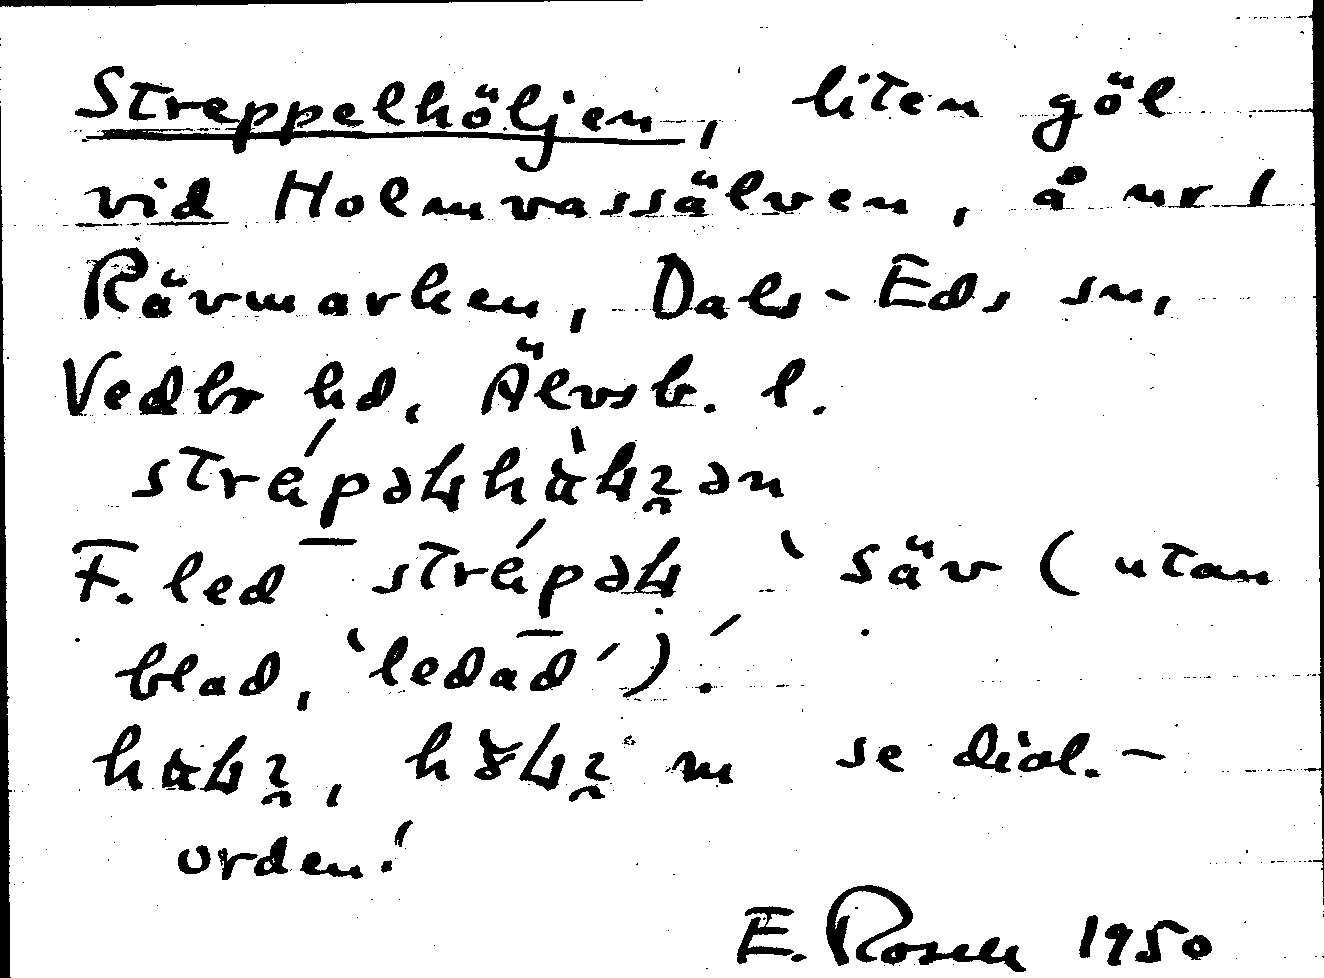 Streppelhöljen, liten göl
vid Holmvassälven, å nr 1
Rävmarken, Dals-Eds sn,
Vedbo hd, Älvsb. l.
F. led säv (utan
blad, 'ledad')'.
m se dial.-
orden!
E. Rosell 1950